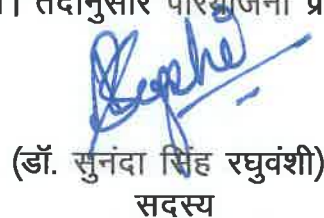 । तदानुसार परियोजना प्र
(डॉ. सुनंदा सिंह रघुवंशी)
सदस्य